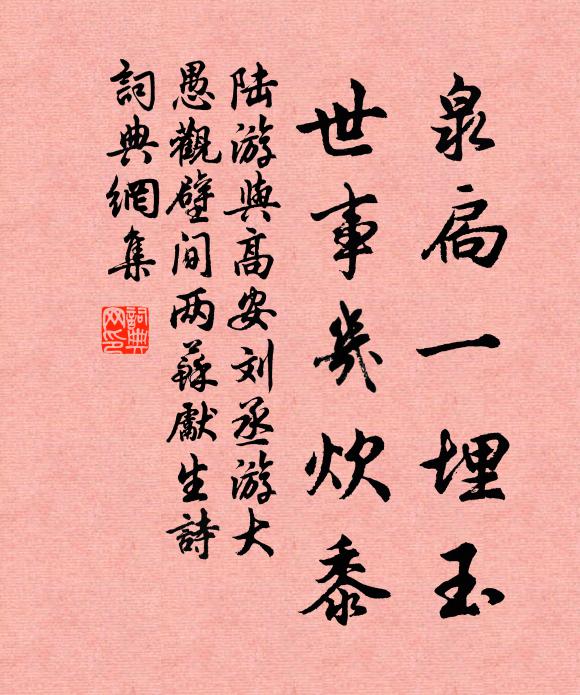 泉扃一埋玉
世事幾炊黍
陆游與高安刘丞游大
愚觀壁间两蘇獻生詩
詞典網集
詞典
网印